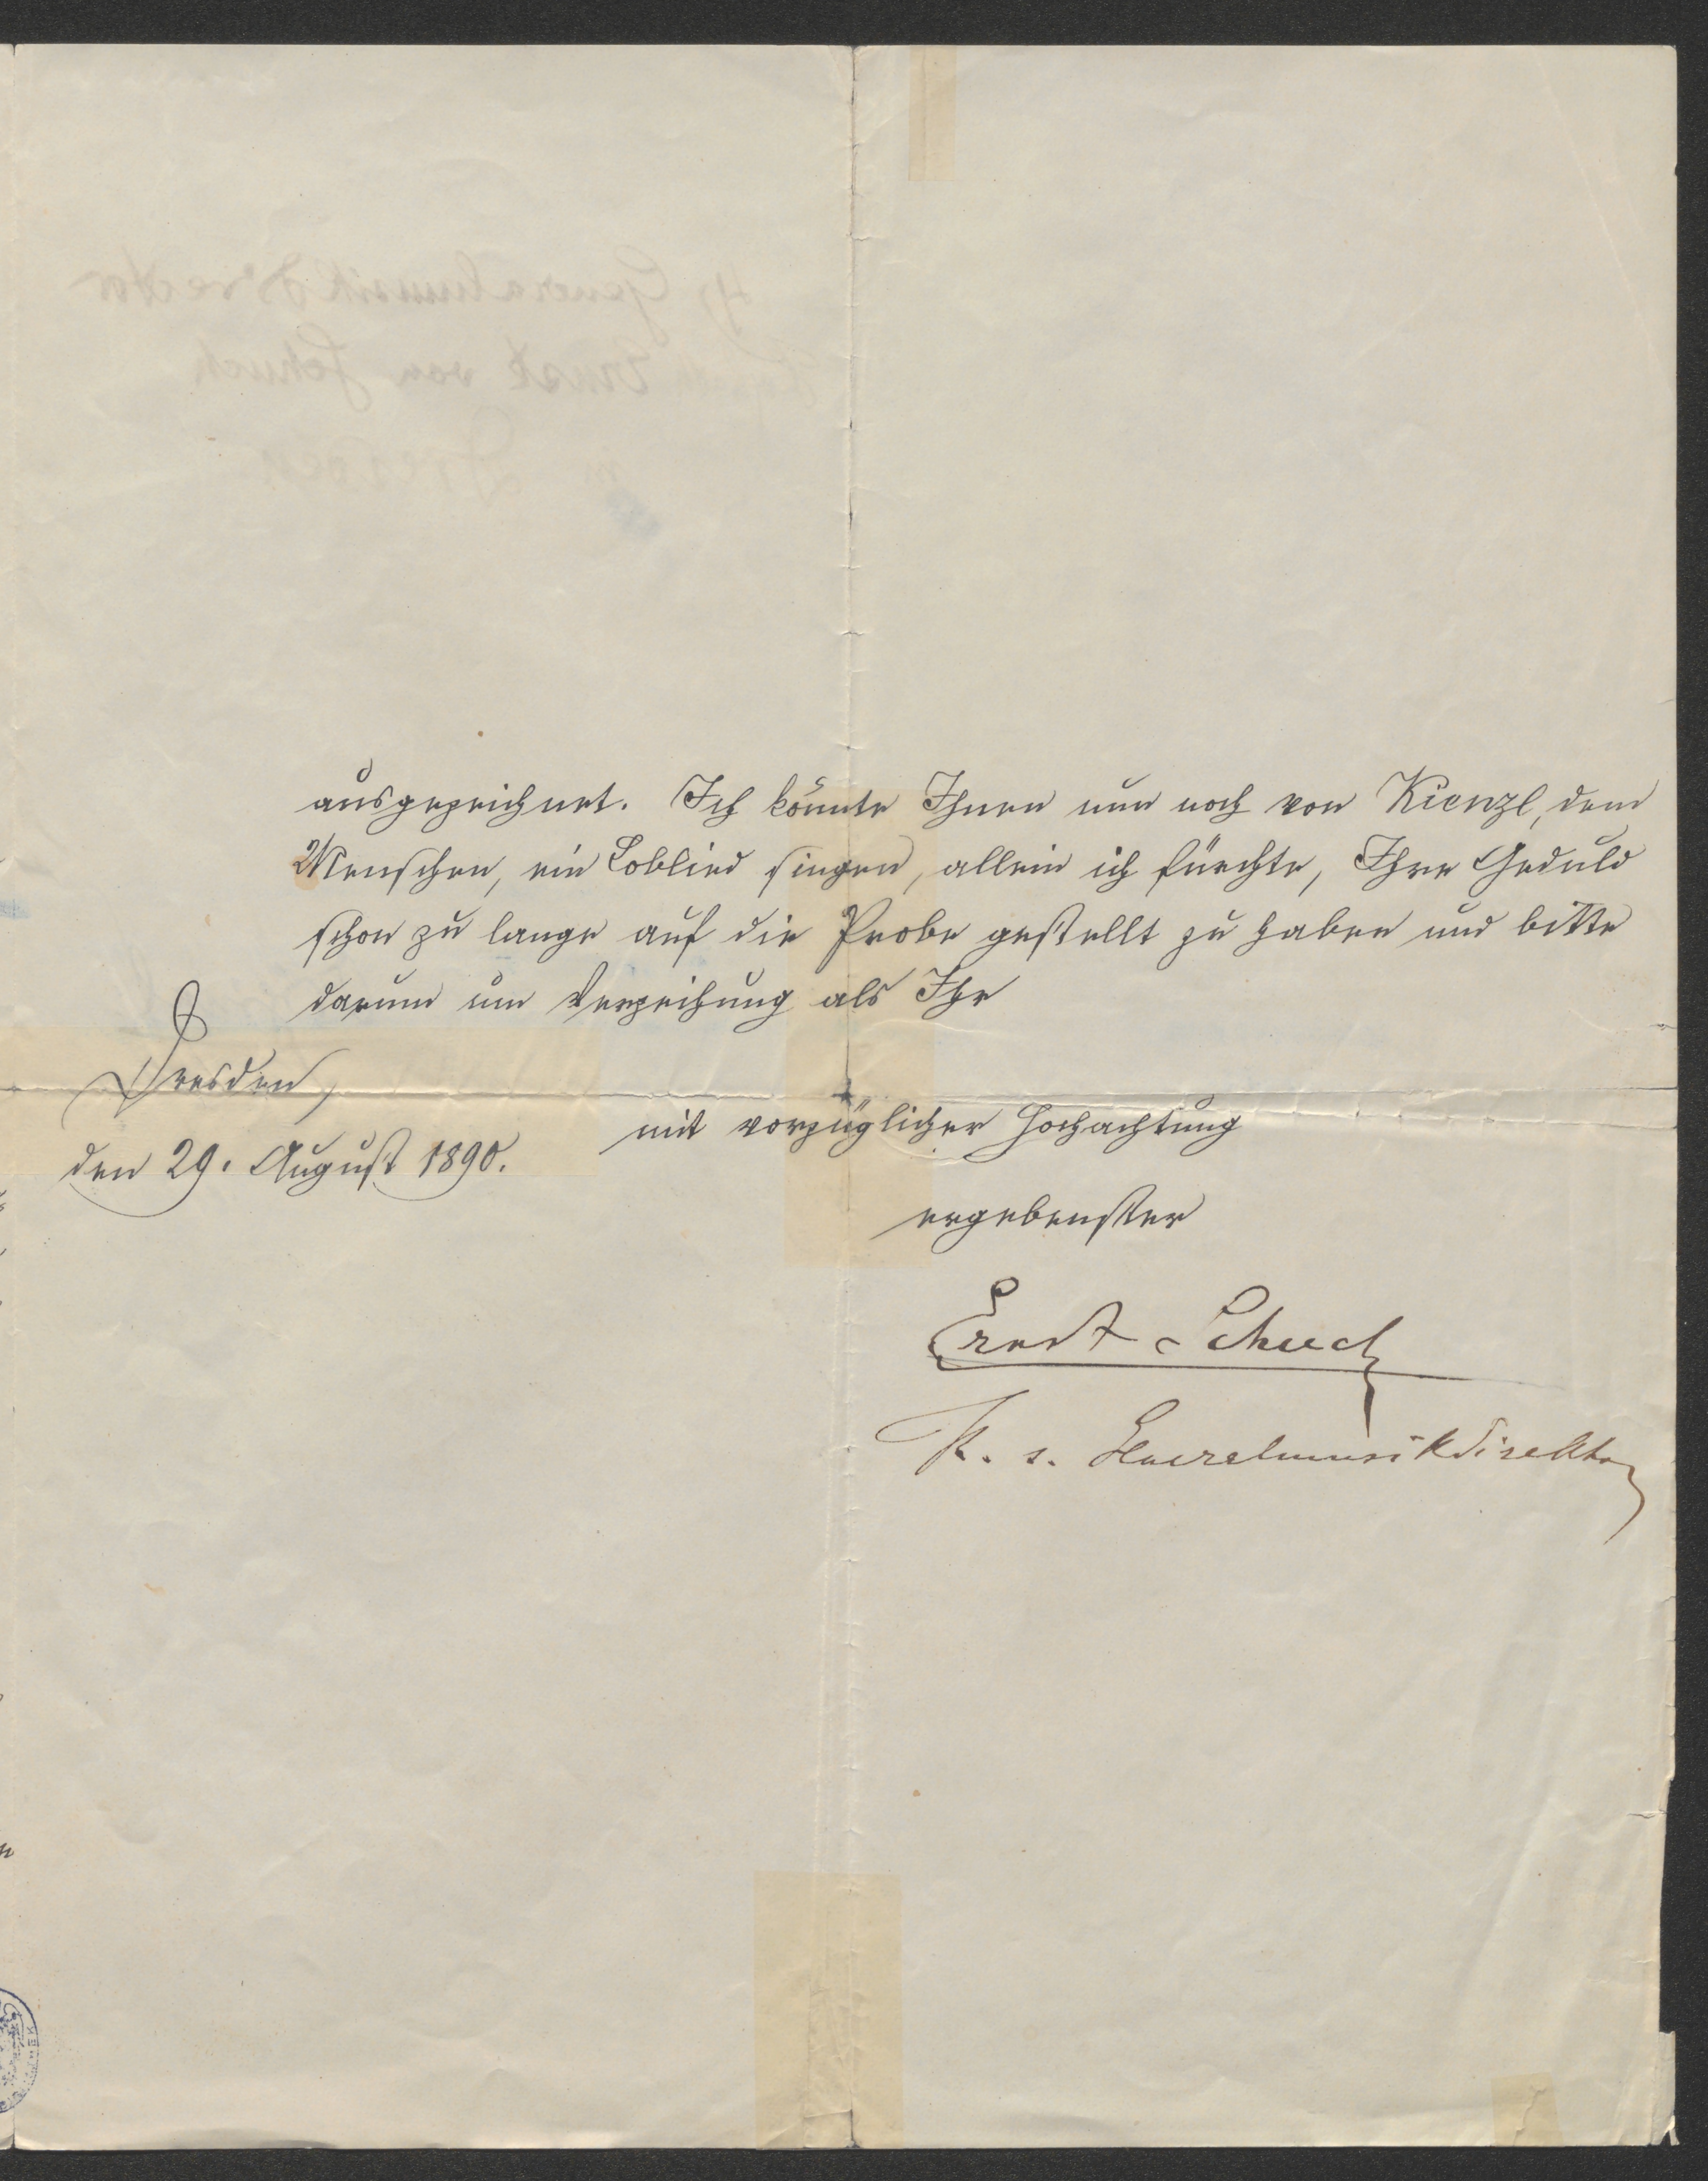 ausgezeichnet. Ich könnte Ihnen nun noch von Kienzl, dem
Menschen, ein Loblied singen, allein ich fürchte, Ihre Geduld
schon zu lange auf die Probe gestellt zu haben und bitte
darum um Verzeihung als Ihr
Dresden,
den 29. August 1890.
mit vorzüglicher Hochachtung
ergebenster
Ernst Schuch
K. s. Generalmusikdirektor